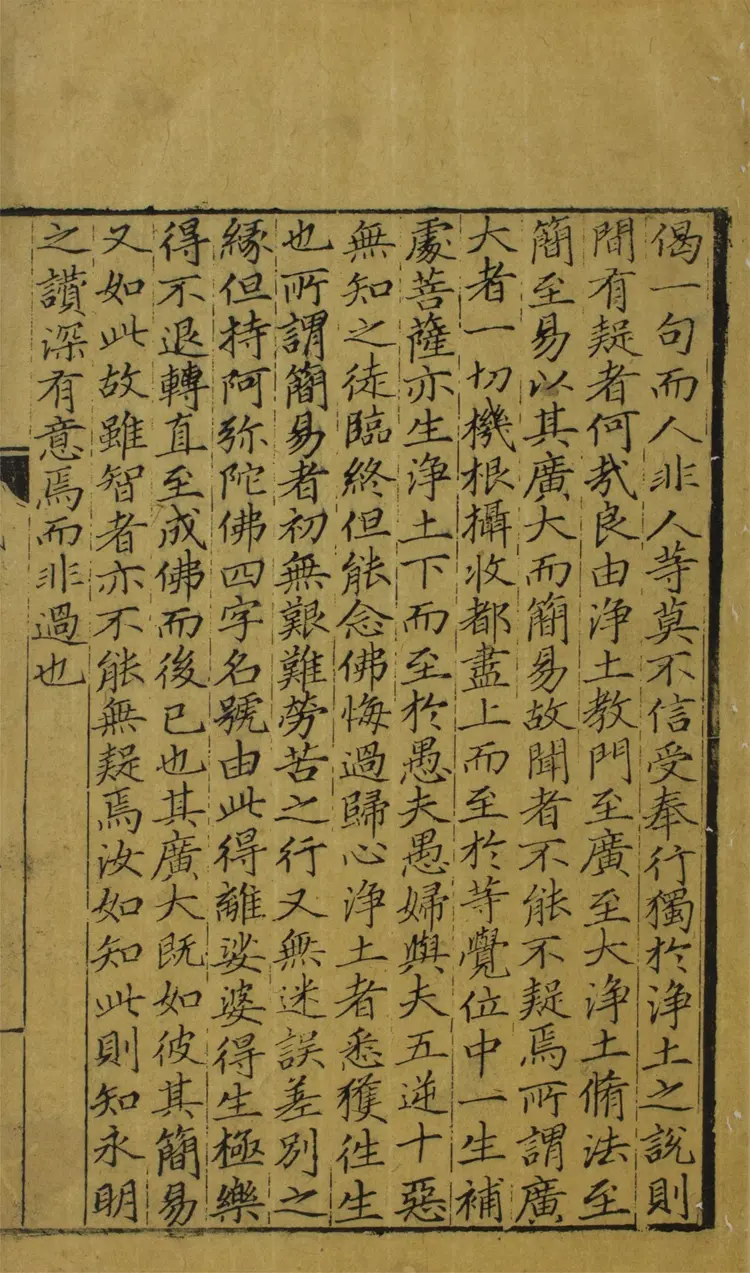 偈一句而人非人等莫不信受奉行獨於淨土之說則
間有疑者何㢤良由淨土教門至廣至大淨土脩法至
簡至易以其廣大而簡易故聞者不能不疑焉所謂廣
大者一切機根攝收都盡上而至於等覺位中一生補
處菩薩亦生淨土下而至於愚夫愚婦與夫五逆十惡
無知之徒臨終但能念佛悔過歸心淨土者悉獲徃生
也所謂簡易者初無艱難勞苦之行又無迷誤差別之
緣但持阿弥陀佛四字名號由此得離娑婆得生極樂
得不退轉直至成佛而後已也其廣大既如彼其簡易
又如此故雖智者亦不能無疑焉汝如知此則知永明
之讚深有意焉而非過也